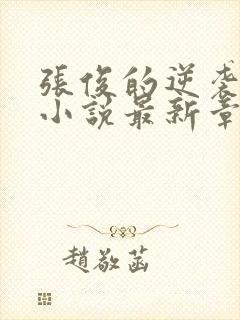 張俊的逆袭
小說最新章
趙敬菡